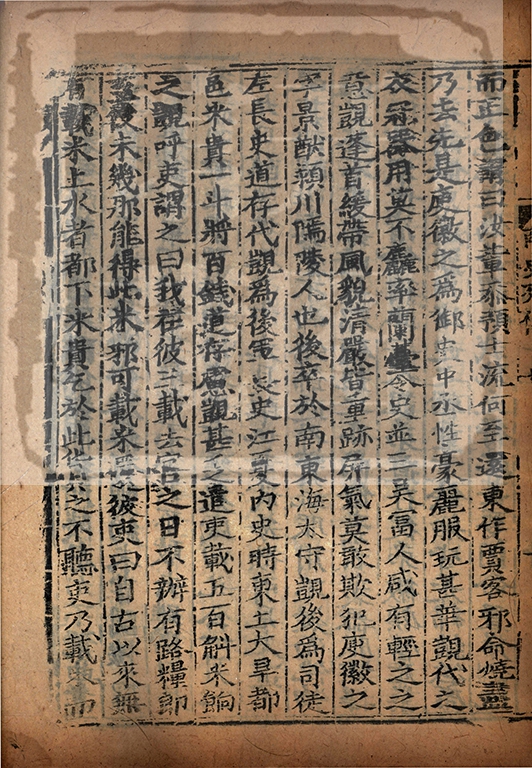 而正色謂曰汝輩忝預士流何至還東作賈客邪命燒盡
乃去先是庾徽之爲御史中丞性豪麗服玩甚華觀代之
衣冠器用莫不麤率蘭臺令史並三吳富人咸有輕之之
意觀蓬首緩帶風貌清嚴皆重跡屏氣莫敢欺犯庾徽之
字景猷潁川隔陵人也後卒於南東海太守觀後爲司徒
左長史道存代觀爲後軍長史江夏內史時東土大旱都
邑米貴一斗將百錢道存慮觀甚乏遣吏載五百斛米餉
之觀呼吏謂之曰我在彼三載去官之日不辦有路糧郎
至彼未幾那能得此米邪可載米還彼吏曰自古以來無
有載米上水者都下米貴乞於此貨之不聽吏乃載米而